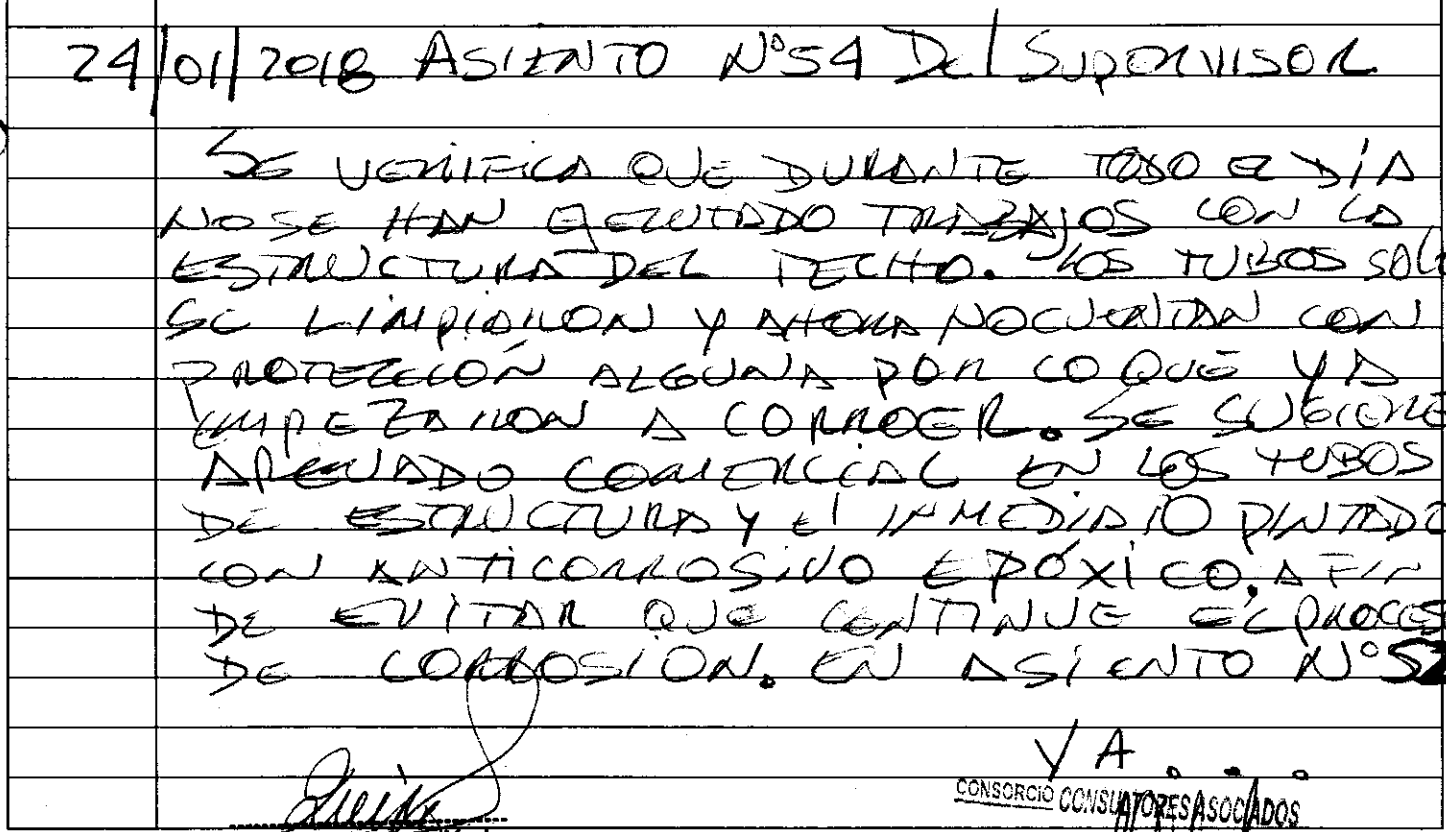 24/01/2018 ASIENTO N°54 Del SUPERVISOR
SE VERIFICA QUE DURANTE TODO EL DÍA
NO SE HAN EJECUTADO TRABAJOS CON LA
ESTRUCTURA DEL TECHO. LOS TUBOS SOLO
SE LIMPIARON Y AHORA NO CUENTAN CON
PROTECCIÓN ALGUNA POR LO QUE YA
EMPEZARON A CORROER. SE SUGIERE
ARENADO COMERCIAL EN LOS TUBOS
DE ESTRUCTURA Y El INMEDIATO PINTADO
CON ANTICORROSIVO EPÓXICO. A FIN
DE EVITAR QUE CONTINUE EL PROCES
DE CORROSIÓN. EN ASIENTO N°52
YA...
CONSORCIO CONSULTORES ASOCIADOS